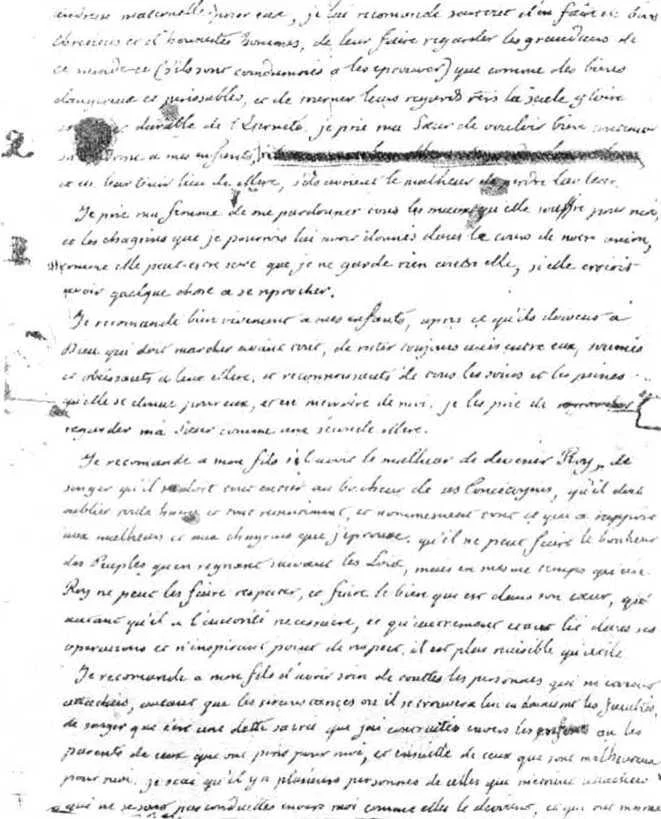 tendresse maternelle pour eux, je lui recomande surtout d'en faire de bons
Chretiens et d'honnestes hommes, de leur faire regarder les grandeurs de
ce monde ci (s'ils sont condamnés a les eprouver) que comme des biens
dangereux et perissables, et de tourner leurs regards vers la seule gloire
durable de l'Eternité, je prie ma Sœur de vouloir bien continuer
2
a mes enfants,
et de leur tenir lieu de Mere, s'ils avoient le malheur de perdre la leur.
Je prie ma femme de me pardonner tous les maux qu'elle souffre pour moi,
et les chagrins que je pourrois lui avoir donnés dans le cours de notre union,
comme elle peut estre sure que je ne garde rien contre elle, si elle croioit
avoir quelque chose a se reprocher.
Je recomande bien vivement a mes enfants, apres ce qu'ils doivent a
Dieu qui doit marcher avant tout, de rester toujours unis entre eux, soumis
et obeissants a leur Mere, et reconnoissants de tous les soins et les peines
qu'elle se donne pour eux, et en memoire de moi. je les prie de
regarder ma Sœur comme une seconde Mere.
Je recomande a mon fils s'il avoit le malheur de devenir Roy, de
songer qu'il se doit tout entier au bonheur de ses Concitoyens, qu'il doit
oublier toute haine et tout ressentiment, et nommement tout ce qui a rapport
aux malheurs et aux chagrins que j'eprouve. qu'il ne peut faire le bonheur
des Peuples qu'en regnant suivant les Loix, mais en mesme temps qu'un
Roy ne peut les faire respecter, et faire le bien qui est dans son cœur, qu'
autant qu'il a l'autorité necessaire, et qu'autrement etant lié dans ses
operations et n'inspirant point de respect, il est plus nuisible qu'utile
Je recomande a mon fils d'avoir soin de touttes les personnes qui m'etoient
attachées, autant que les circonstances ou il se trouvera lui en donneront les facultés,
de songer que c'est une dette sacrée que j'ai contractée envers les enfants ou les
parents de ceux qui ont peris pour moi, et ensuitte de ceux qui sont malheureux
pour moi. je scai qu'il y a plusieurs personnes de celles qui m'etoient attachées
qui ne se sont pas conduittes envers moi comme elles le devoient, et qui ont mesme